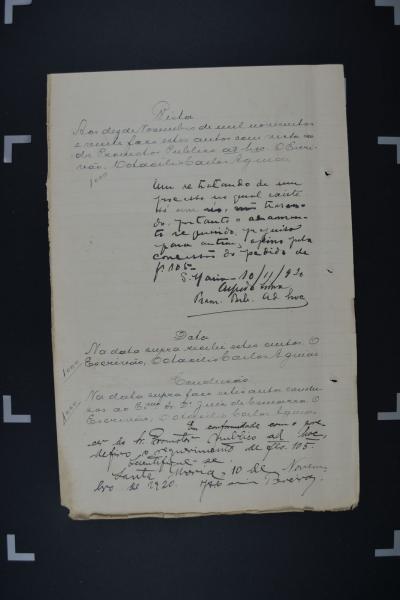 Vista
Aos dez de Novembro de mil novecentos
e vinte faço estes autos com vista ao
dr. Promotor Publico ad-hoc. O Escri-
vão, Octacilio Carlos Aguiar
1000
Em se tratando de um
processo no qual existe
só um réo, não trazen-
do, portanto o adiamen-
to requerido, prejuizo
para outrem, opino pela
concessão do pedido de
fl 105.
S. Maria - 10/11/920
Prom. Pub. ad hoc
Data
1000
Na data supra recebi estes autos. O
Escrivão, Octacilio Carlos Aguiar
Conclusão
1000
Na data supra faço estes autos conclu-
sos ao Exmo Sr. Dr. Juiz de Comarca. O
Escrivão, Octacilio Carlos Aguiar
Em conformidade com o pare-
cer do Dr. Promotor Publico ad hoc
defiro o requerimento de fls. 105.
Scientifique-se.
Santa Maria, 10 de Novem
bro de 1920.